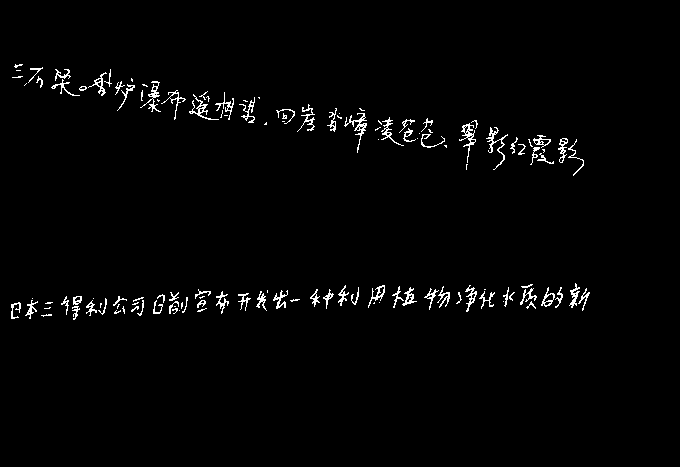 三石梁。香炉瀑布遥相望,回崖沓嶂凌苍苍、翠影红霞影
日本三得利公司日前宣布开发出一种利用植物净化水质的新